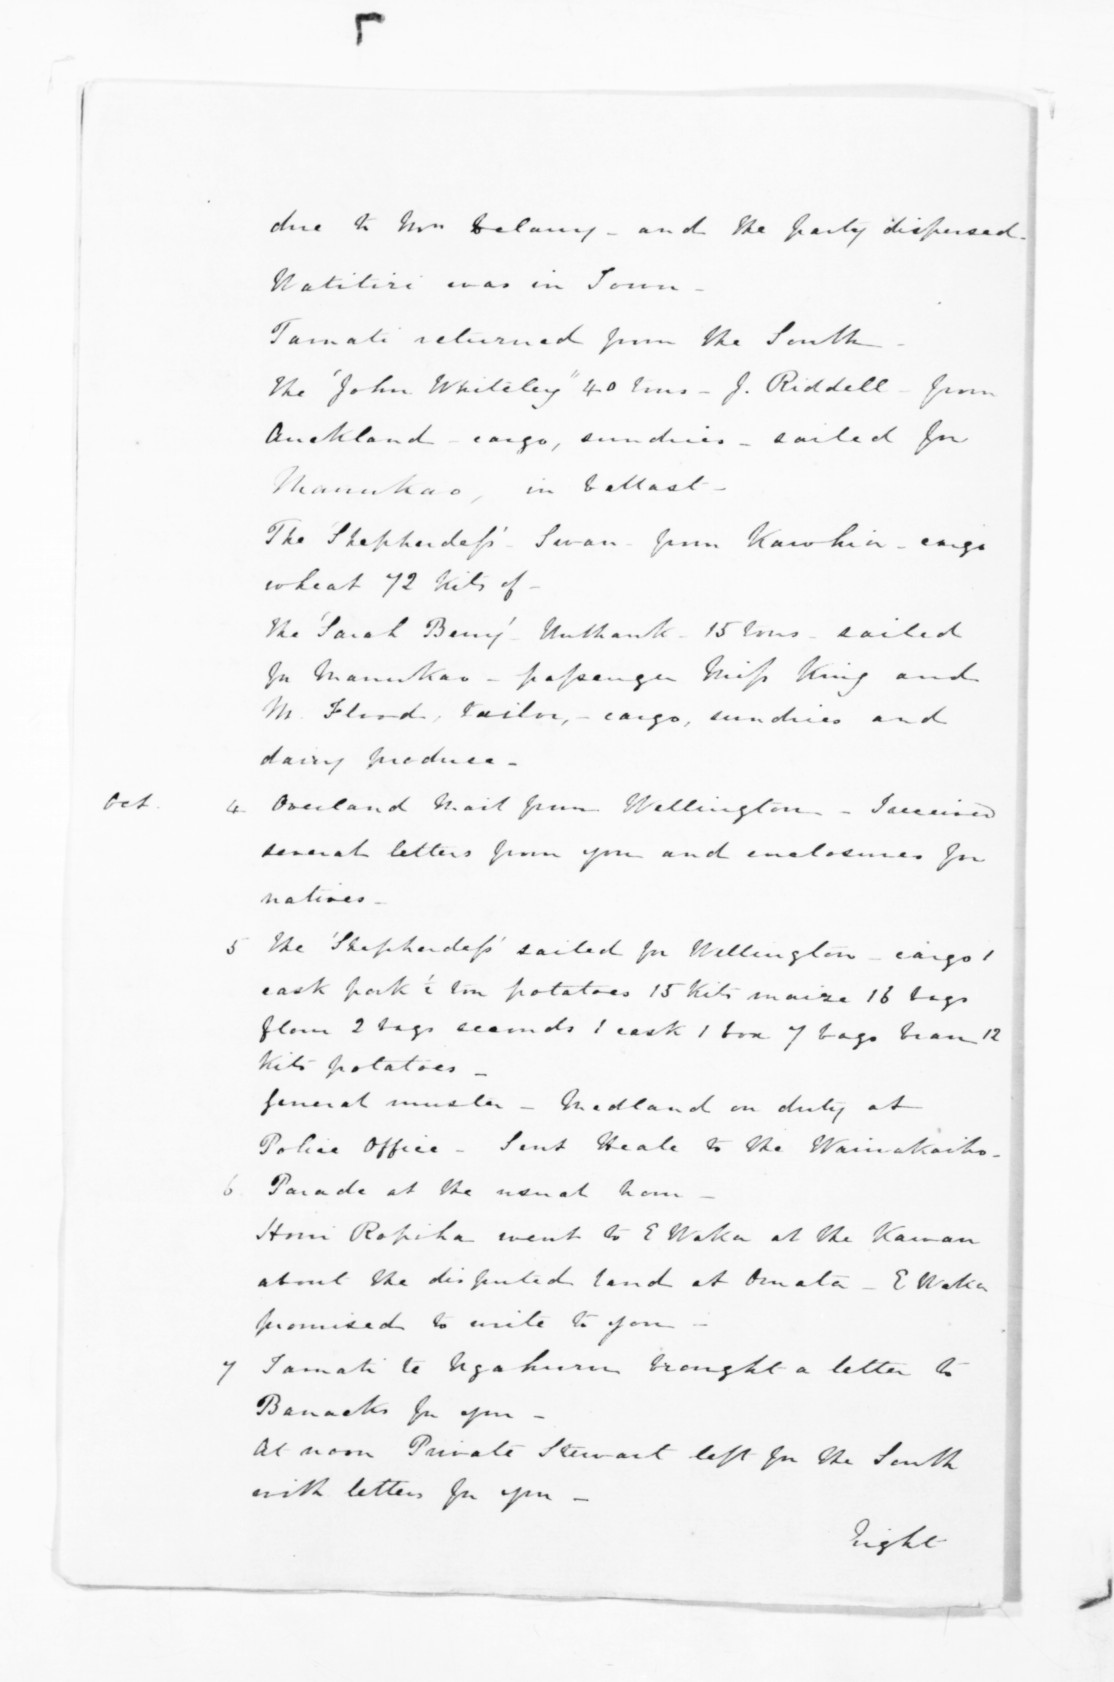 due to Wm Delamy - and the party dispersed -
Watitiri was in Town -
Tamati returned from the South -
The "John Whiteley" 40 tons - J. Riddell - from
Auckland - cargo, sundries - sailed for
Manukao, in ballast -
The 'Shepherdess' - Swan - from Kawhia - cargo
wheat 72 Kits of -
The 'Sarah Berry' - Unthank - 15 tons - sailed
for Manukao - passenger Miss King and
Mr. Flood, tailor, - cargo, sundries and
dairy produce -
Oct. 4 Overland Mail from Wellington - I received
several letters from you and enclosures for
natives -
5 The 'Shepherdess' sailed for Wellington - cargo 1
cask pork ton potatoes 15 Kits maize 16 bags
flour 2 bags seconds 1 cask 1 box 7 bags bran 12
Kits potatoes -
General muster - Medland on duty at
Police Office - Sent Heale to the Waiwakaiho -
6 Parade at the usual hour -
Honi Ropiha went to E Waka at the Kawau
about the disputed land at Omata - E Waka
promised to write to you -
7 Tamati te Ngahuru brought a letter to
Barracks for you -
At noon Private Stewart left for the South
with letters for you -
Eight